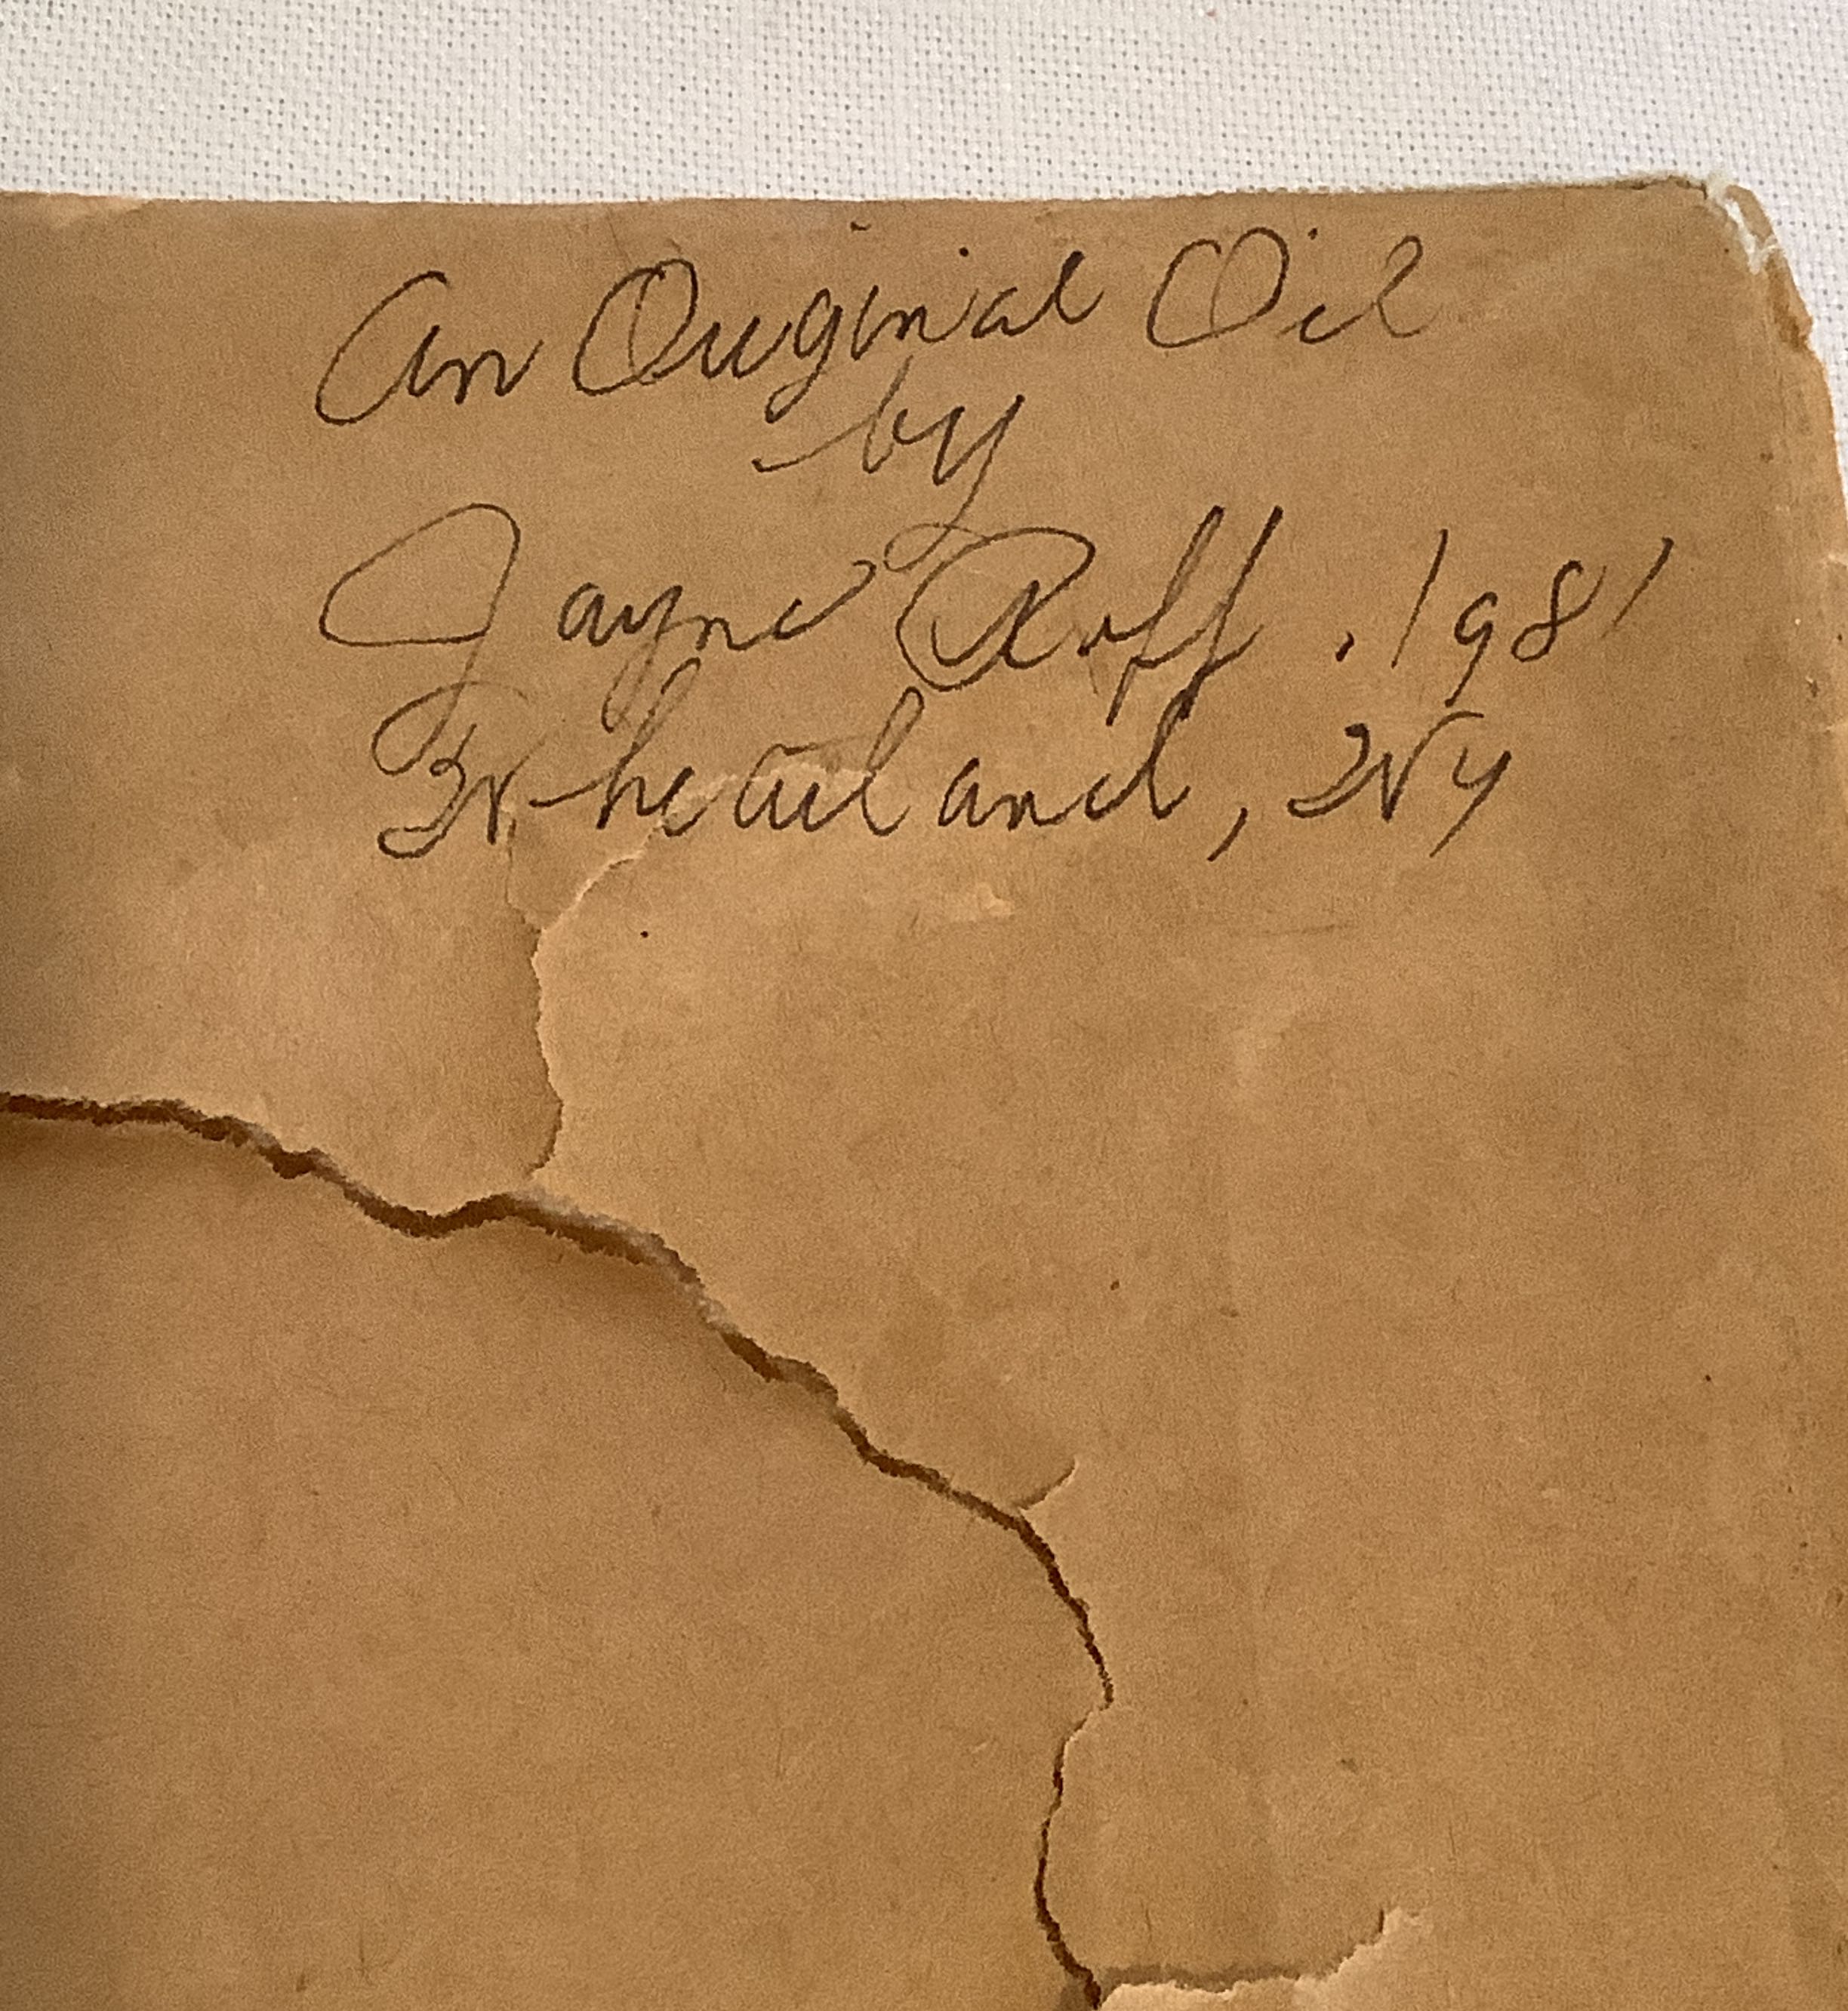 An Original Oil
by
Jayne Roff . 1981
Wheatland, NY